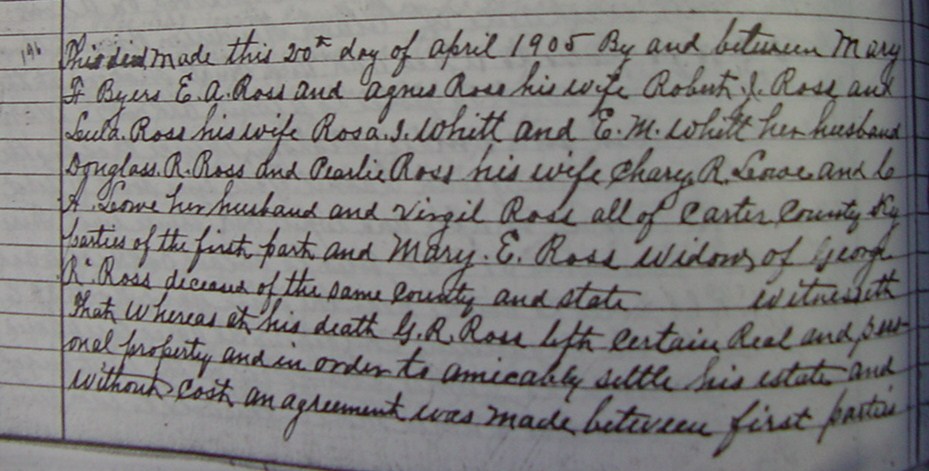 196 This deed made this 20th day of april 1905 By and between Mary
F Byers E. A. Ross and agnes Ross his wife Robert. J. Ross and
Lula. Ross his wife Rosa. J. Whitt and E. M. Whitt her husband
Douglass. R. Ross and Pearlie Ross his wife R. Lowe and
A. Lowe her husband and Virgil Ross all of Carter County Ky
parties of the first part and Mary. E. Ross widow of Georg
R. Ross deceasd of the same county and state witnesseth
That Whereas at his death G. R. Ross left certain Real and pers-
onal property and in order to amicably settle his estate and
without cost an agreement was made between first parties